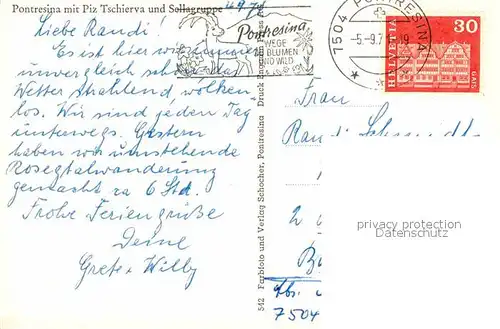 Pontresina mit Piz Tschierva und Sellagruppe
Liebe Randi!
Es ist hier
unvergleich schön das
Wetter strahlend wolken-
los. Wir sind jeden Tag
unterwegs. Gestern
haben wir umstehende
Rosegtalwanderung
gemacht ca 6 Std.
Frohe Feriengrüße
Deine
Grete + Willy
Pontresina
WEGE
BLUMEN
UND WILD
7504 PONTRESINA
-5.-9.7
19
HELVETIA
30
GAIS
542 Farbfoto und Verlag Schocher, Pontresina Druck
Frau
2
privacy protection
Datenschutz
7504